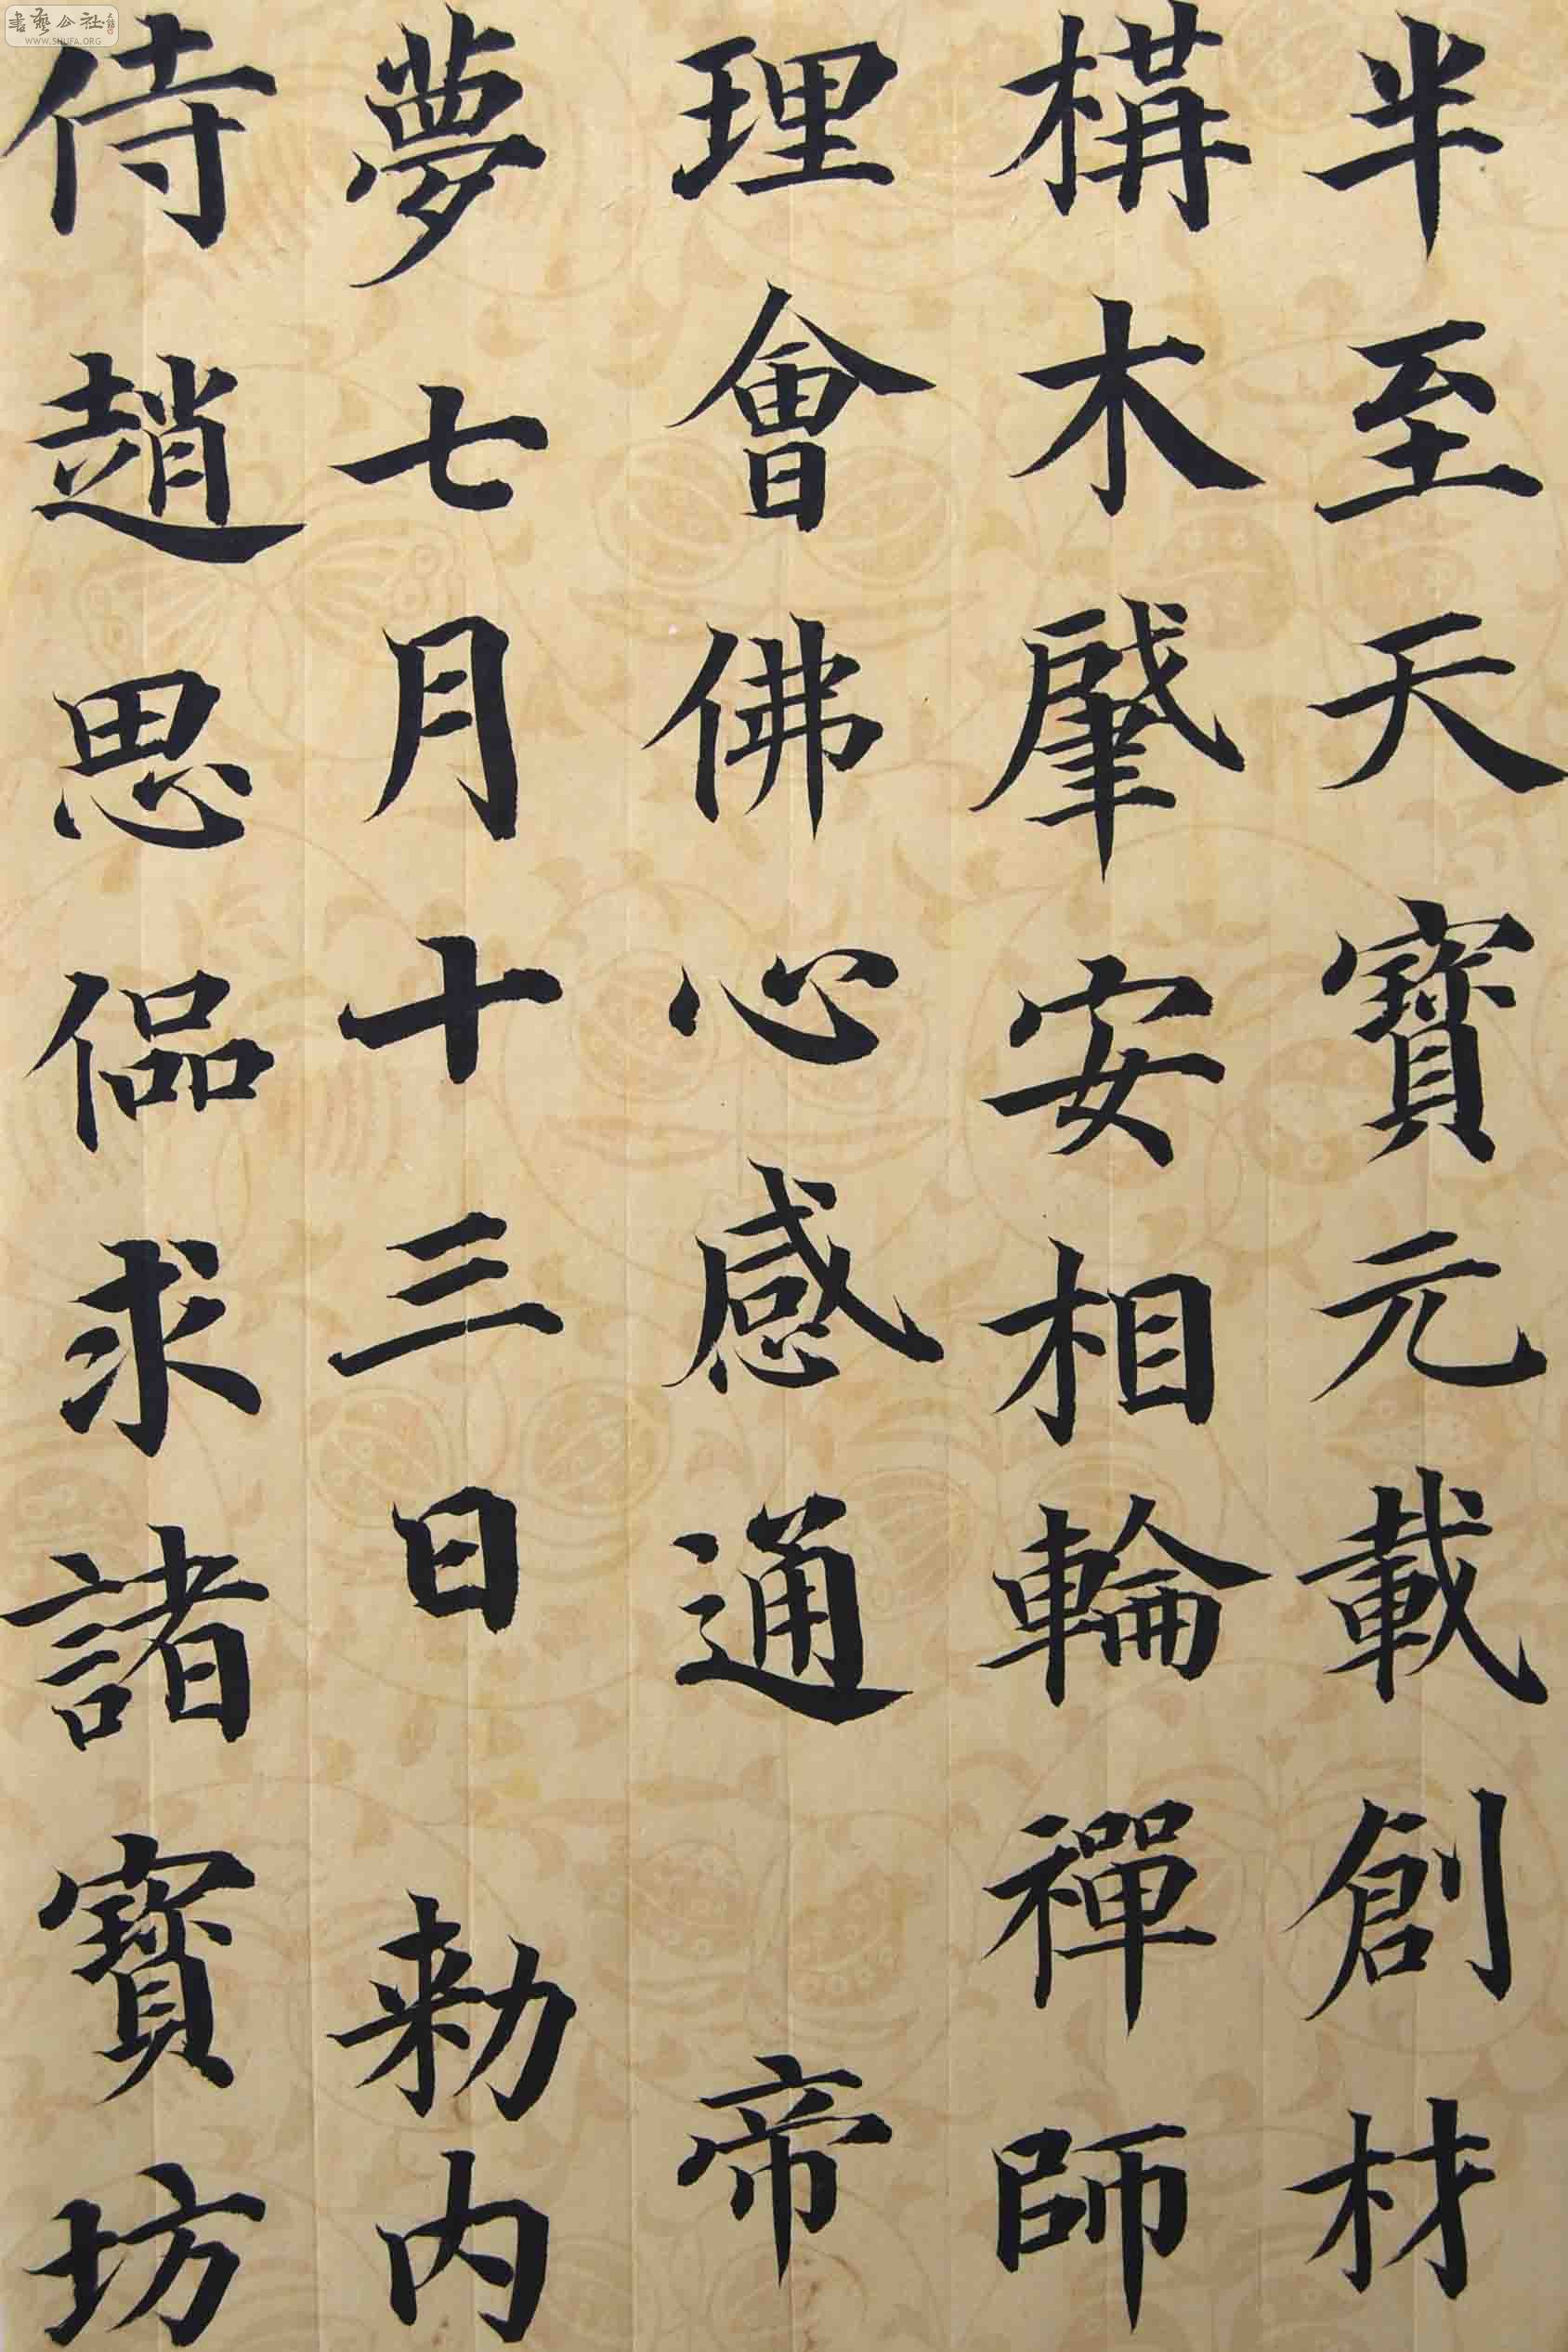 半至天寶元載創材
構木肇安相輪禪師
理會佛心感通 帝
夢七月十三日 勅內
侍趙思偘求諸寶坊
書藝公社
WWW.SHUFA.ORG